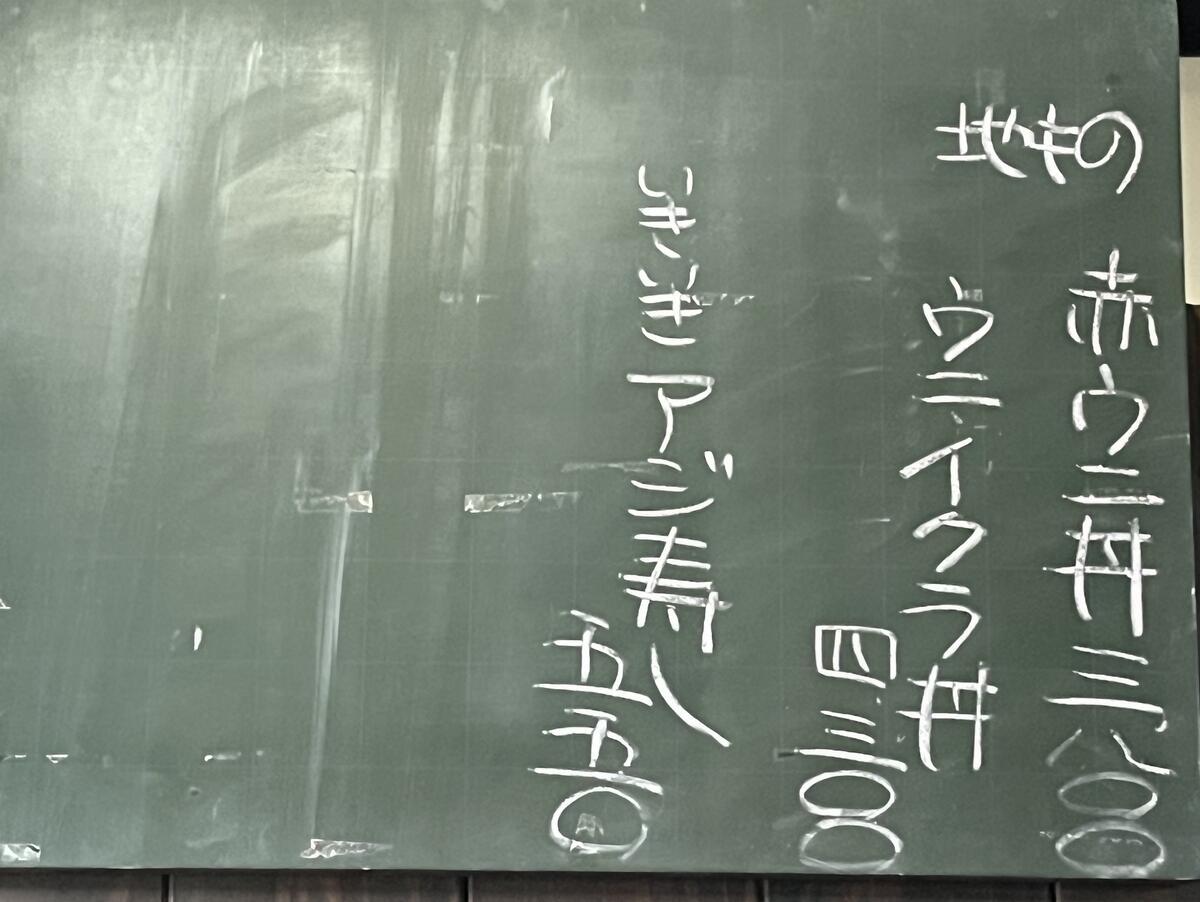 地もの
赤ウニ丼三八〇〇
ウニ・イクラ丼
四三〇〇
いきいきアジ寿し
五五〇